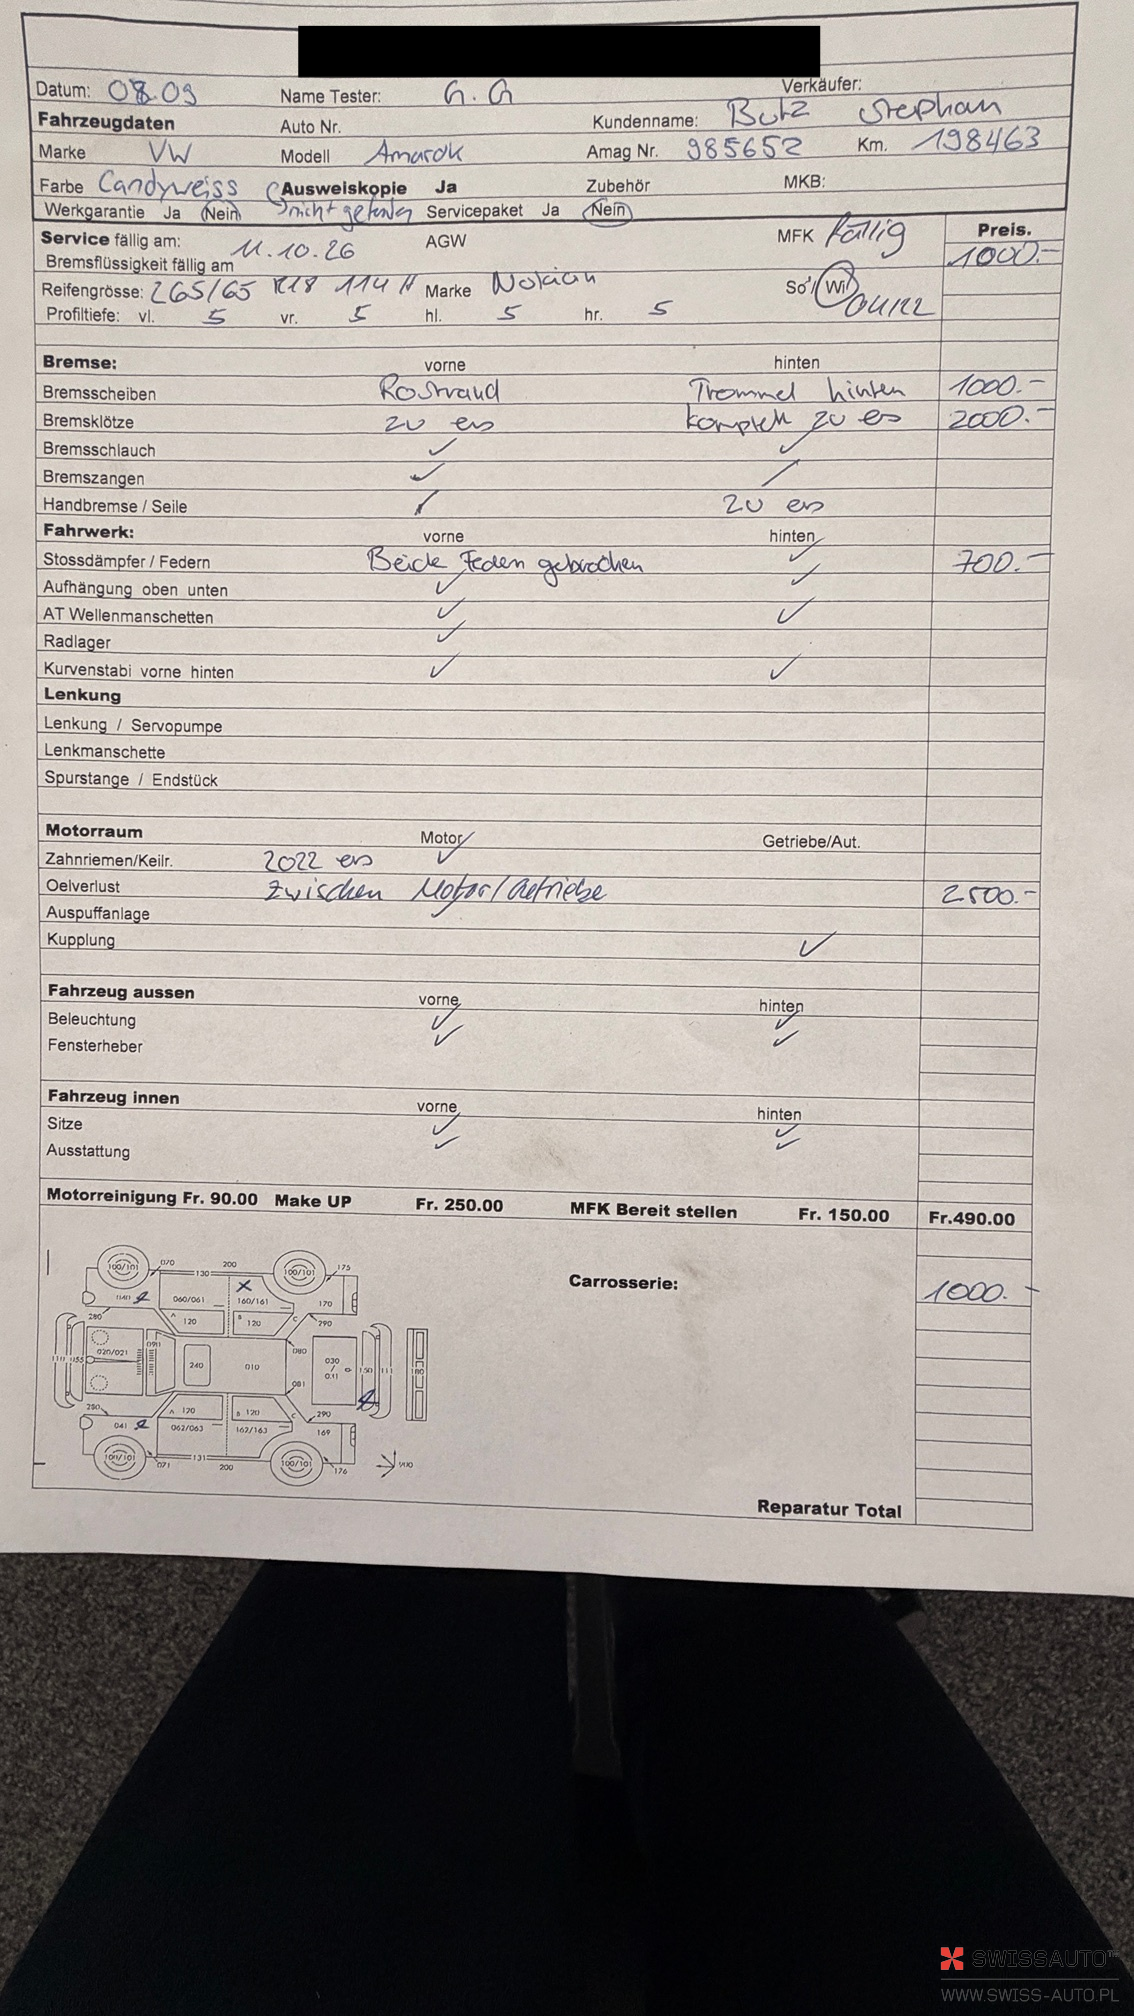 Datum: 08.09 Name Tester: G. G Verkäufer:
Fahrzeugdaten Auto Nr. Kundenname: Butz Stephan
Marke VW Modell Amarok Amag Nr. 985652 Km. 198463
Farbe Candyweiss Ausweiskopie Ja Zubehör MKB:
Werkgarantie Ja Nein nicht gefunden Servicepaket Ja Nein
Service fällig am: 11.10.26 AGW MFK fällig Preis.
Bremsflüssigkeit fällig am 1000.-
Reifengrösse: 265/65 R18 114 H Marke Nokian So / Wi
Profiltiefe: vl. 5 vr. 5 hl. 5 hr. 5
Bremse: vorne hinten
Bremsscheiben Rostrand Trommel hinten 1000.-
Bremsklötze zu ers komplett zu ers 2000.-
Bremsschlauch ✓ ✓
Bremszangen ✓ /
Handbremse / Seile / zu ers
Fahrwerk: vorne hinten
Stossdämpfer / Federn Beide Federn gebrochen ✓ 700.-
Aufhängung oben unten ✓ ✓
AT Wellenmanschetten ✓ ✓
Radlager ✓
Kurvenstabi vorne hinten ✓ ✓
Lenkung
Lenkung / Servopumpe
Lenkmanschette
Spurstange / Endstück
Motorraum Motor Getriebe/Aut.
Zahnriemen/Keilr. 2022 ers ✓
Oelverlust zwischen Motor/Getriebe 2500.-
Auspuffanlage ✓
Kupplung ✓
Fahrzeug aussen vorne hinten
Beleuchtung ✓ ✓
Fensterheber ✓ ✓
Fahrzeug innen vorne hinten
Sitze ✓ ✓
Ausstattung ✓ ✓
Motorreinigung Fr. 90.00 Make UP Fr. 250.00 MFK Bereit stellen Fr. 150.00 Fr.490.00
Carrosserie: 1000.-
100/101 070 200 100/101 175
130
060/061 X 160/161 170
280 A 120 B 120 C 290
020/021 090 080
110 055 240 010 030 / 031 150 111 180
081
280 A 120 B 120 C 290
041 062/063 162/163 169
100/101 071 131 200 100/101 176
Reparatur Total
SWISSAUTO
WWW.SWISS-AUTO.PL